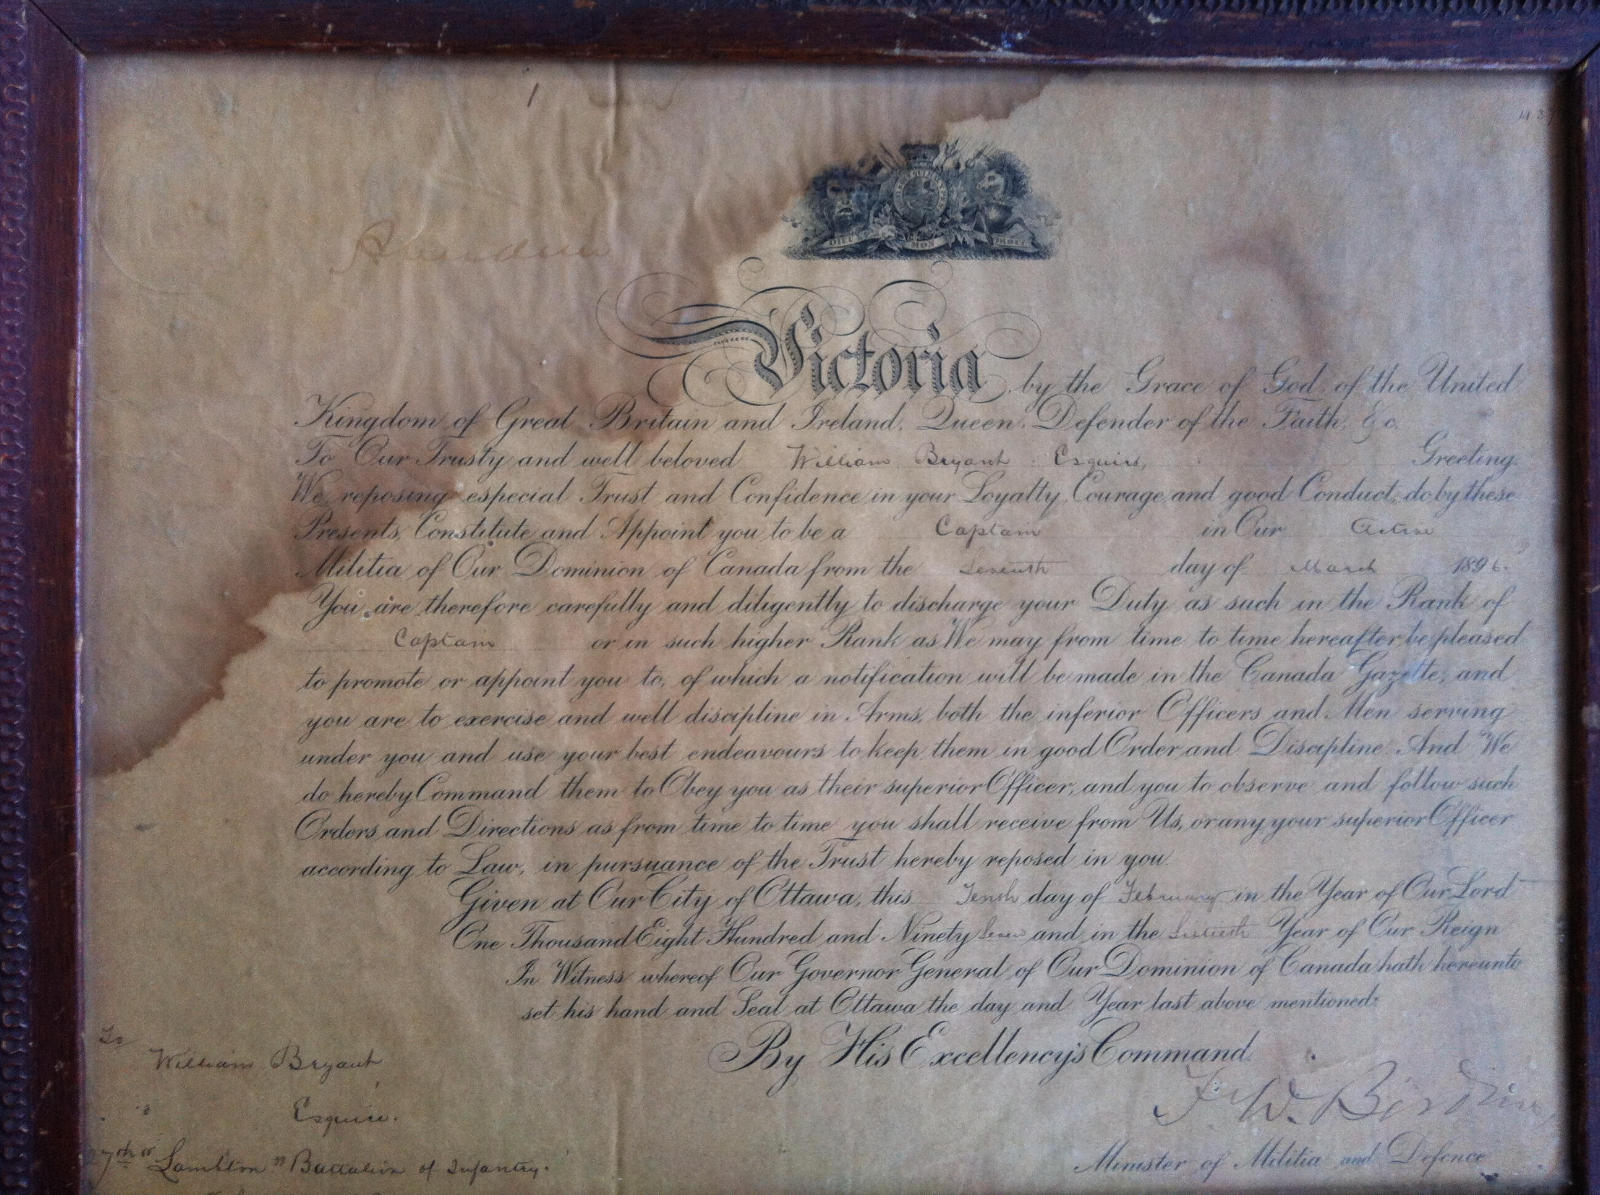 DIEU MON DROIT
Aberdeen
Victoria by the Grace of God, of the United
Kingdom of Great Britain and Ireland, Queen, Defender of the Faith, &c.
To Our Trusty and well beloved William Bryant Esquire, Greeting.
We reposing especial Trust and Confidence in your Loyalty, Courage, and good Conduct, do by these
Presents, Constitute and Appoint you to be a Captain in Our Active
Militia of Our Dominion of Canada from the Seventh day of March 1896.
You are therefore carefully and diligently to discharge your Duty as such in the Rank of
Captain or in such higher Rank as We may from time to time hereafter be pleased
to promote or appoint you to, of which a notification will be made in the Canada Gazette, and
you are to exercise and well discipline in Arms, both the inferior Officers and Men serving
under you and use your best endeavours to keep them in good Order and Discipline. And We
do hereby Command them to Obey you as their superior Officer, and you to observe and follow such
Orders and Directions as from time to time you shall receive from Us, or any your superior Officer
according to Law, in pursuance of the Trust hereby reposed in you.
Given at Our City of Ottawa, this Tenth day of February in the Year of Our Lord
One Thousand Eight Hundred and Ninety Seven and in the Sixtieth Year of Our Reign
In Witness whereof Our Governor General of Our Dominion of Canada hath hereunto
set his hand and Seal at Ottawa the day and Year last above mentioned.
By His Excellency's Command.
To
William Bryant
Esquire.
27th "Lambton" Battalion of Infantry.
F. W. Borden
Minister of Militia and Defence